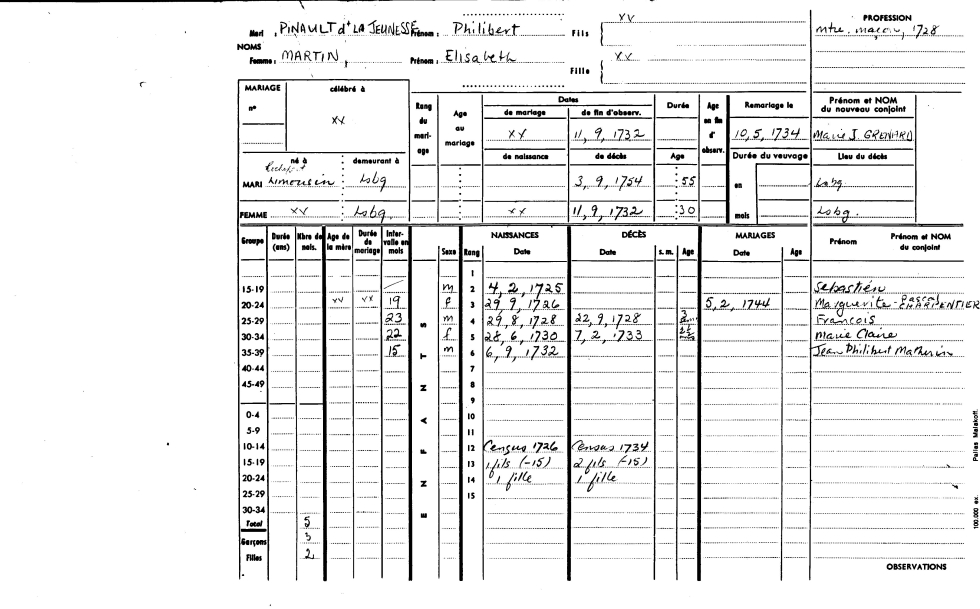 Mari : PINAULT dt LA JEUNESSE Prénom : Philibert Fils { XV PROFESSION
mtre. maçon, 1728
NOMS
Femme : MARTIN, Prénom : Elisabeth Fille { XX
MARIAGE célébré à
n° XX
Rang du mari-age
Age au mariage
Dates
de mariage de fin d'observ.
XX 11, 9, 1732
Durée
Age en fin d' observ.
Remariage le
10, 5, 1734
Prénom et NOM du nouveau conjoint
Marie J. GRENARD
né à demeurant à de naissance de décès Age Durée du veuvage Lieu du décès
MARI Limousin Lsbg 3, 9, 1754 55 en Lsbg.
FEMME XV Lsbg. XX 11, 9, 1732 30 mois Lsbg.
Groupe Durée (ans) Nbre de nais. Age de la mère Durée de mariage Inter-valle en mois Sexe Rang NAISSANCES Date DÉCÈS Date s. m. Age MARIAGES Date Age Prénom Prénom et NOM du conjoint
ENFANTS
1
15-19 m 2 4, 2, 1725 Sebastién
20-24 XV XX 19 f 3 29, 9, 1726 5, 2, 1744 Marguerite - Pascal CHARPENTIER
25-29 23 m 4 29, 8, 1728 22, 9, 1728 Francois
30-34 22 f 5 28, 6, 1730 7, 2, 1733 Marie Claire
35-39 15 m 6 6, 9, 1732 Jean Philibert Matherin
40-44 7
45-49 8
9
0-4 10
5-9 11
10-14 12 Census 1726 Census 1734
15-19 13 1 fils (-15) 2 fils (-15)
20-24 14 1 fille 1 fille
25-29 15
30-34
Total 5
Garçons 3
Filles 2
OBSERVATIONS
100.000 ex. Pallas Malakoff.